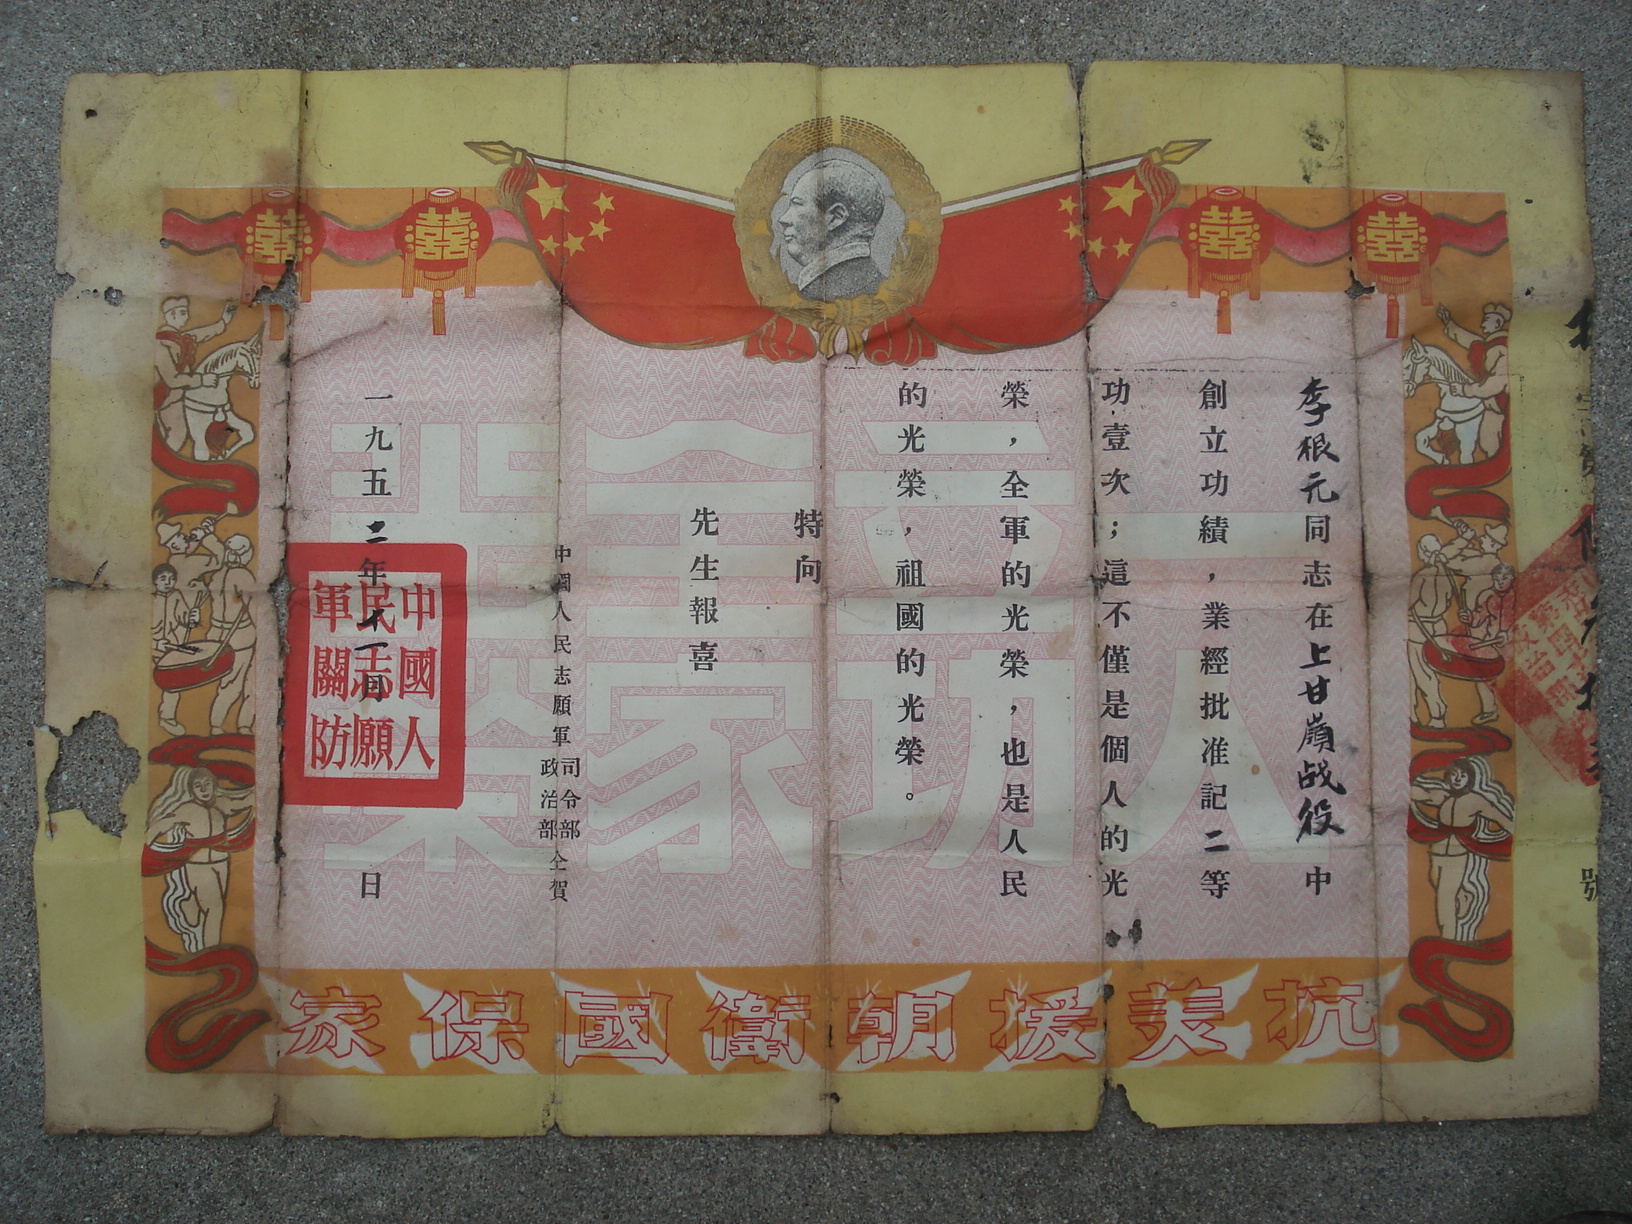 李根元同志在上甘嶺战役中
創立功績，業經批准記二等
功壹次；這不僅是個人的光
榮，全軍的光榮，也是人民
的光榮，祖國的光榮。
特向
先生報喜
中國人民志願軍
司令部
政治部
仝賀
一九五二年十一月 日
中國人
民志願
軍關防
一人立功
全家光榮
抗美援朝衛國保家
囍
囍
囍
囍
號